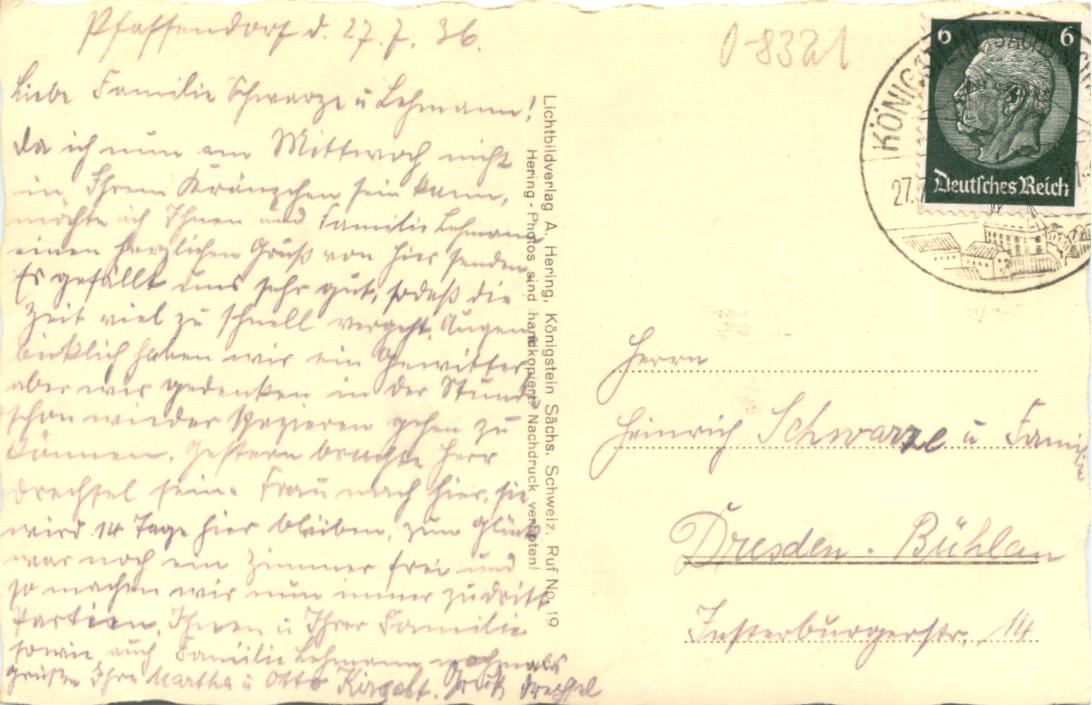 Pfaffendorf d. 27.7.36.
0-8321
Liebe Familie Schwarze u Lehmann!
Da ich nun am Mittwoch nicht
in Ihrem Kränzchen sein kann,
möchte ich Ihnen und Familie Lehmann
einen herzlichen Gruß von hier senden.
Es gefällt uns sehr gut, sodaß die
Zeit viel zu schnell vergeht. Augen
blicklich haben wir ein Gewitter,
aber wir gedenken in der Stunde
schon wieder spazieren gehen zu
können. Gestern brachte Herr
Drechsel seine Frau nach hier, sie
wird 14 Tage hier bleiben, zum Glück
war noch ein Zimmer frei und
so machen wir nun immer zu dritt
Partien. Ihnen u Ihrer Familie
sowie auch Familie Lehmann nochmals
Grüße Ihre Martha u Otto
Gruß Drechsel
Lichtbildverlag A. Hering, Königstein Sächs. Schweiz, Ruf No. 19
Hering-Photos sind handkopiert! Nachdruck verboten!
6 6
Deutsches Reich
KÖNIGSTEIN
27.7
Herrn
Heinrich Schwarze u Familie
Dresden-Bühlau
Insterburgerstr. 14